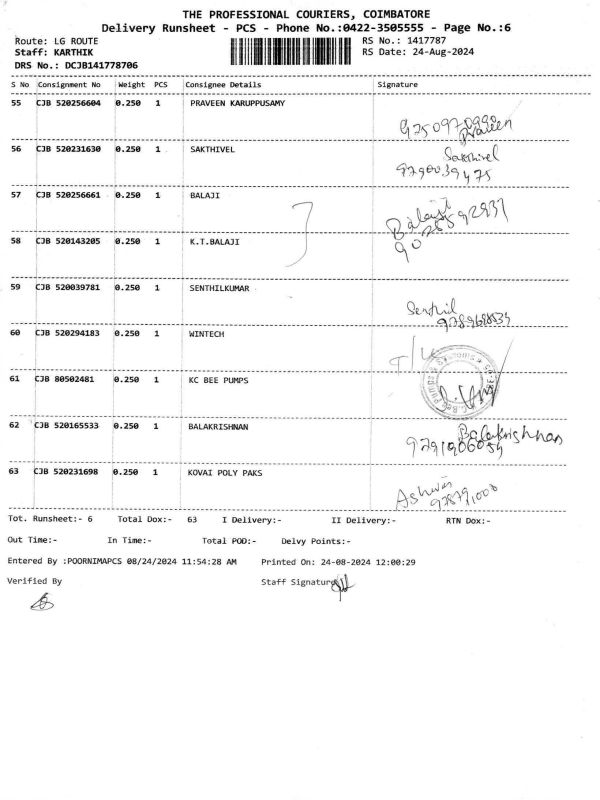 THE PROFESSIONAL COURIERS, COIMBATORE
Delivery Runsheet - PCS - Phone No.:0422-3505555 - Page No.:6
Route: LG ROUTE RS No.: 1417787
Staff: KARTHIK RS Date: 24-Aug-2024
DRS No.: DCJB141778706
S No Consignment No Weight PCS Consignee Details Signature
55 CJB 520256604 0.250 1 PRAVEEN KARUPPUSAMY
Praveen
56 CJB 520231630 0.250 1 SAKTHIVEL Sakthivel
9790039475
57 CJB 520256661 0.250 1 BALAJI
Balaji
9025592937
58 CJB 520143205 0.250 1 K.T.BALAJI
59 CJB 520039781 0.250 1 SENTHILKUMAR
Senthil
60 CJB 520294183 0.250 1 WINTECH
61 CJB 80502481 0.250 1 KC BEE PUMPS
62 CJB 520165533 0.250 1 BALAKRISHNAN Balakrishnan
63 CJB 520231698 0.250 1 KOVAI POLY PAKS
Ashwin
Tot. Runsheet:- 6 Total Dox:- 63 I Delivery:- II Delivery:- RTN Dox:-
Out Time:- In Time:- Total POD:- Delvy Points:-
Entered By :POORNIMAPCS 08/24/2024 11:54:28 AM Printed On: 24-08-2024 12:00:29
Verified By Staff Signature